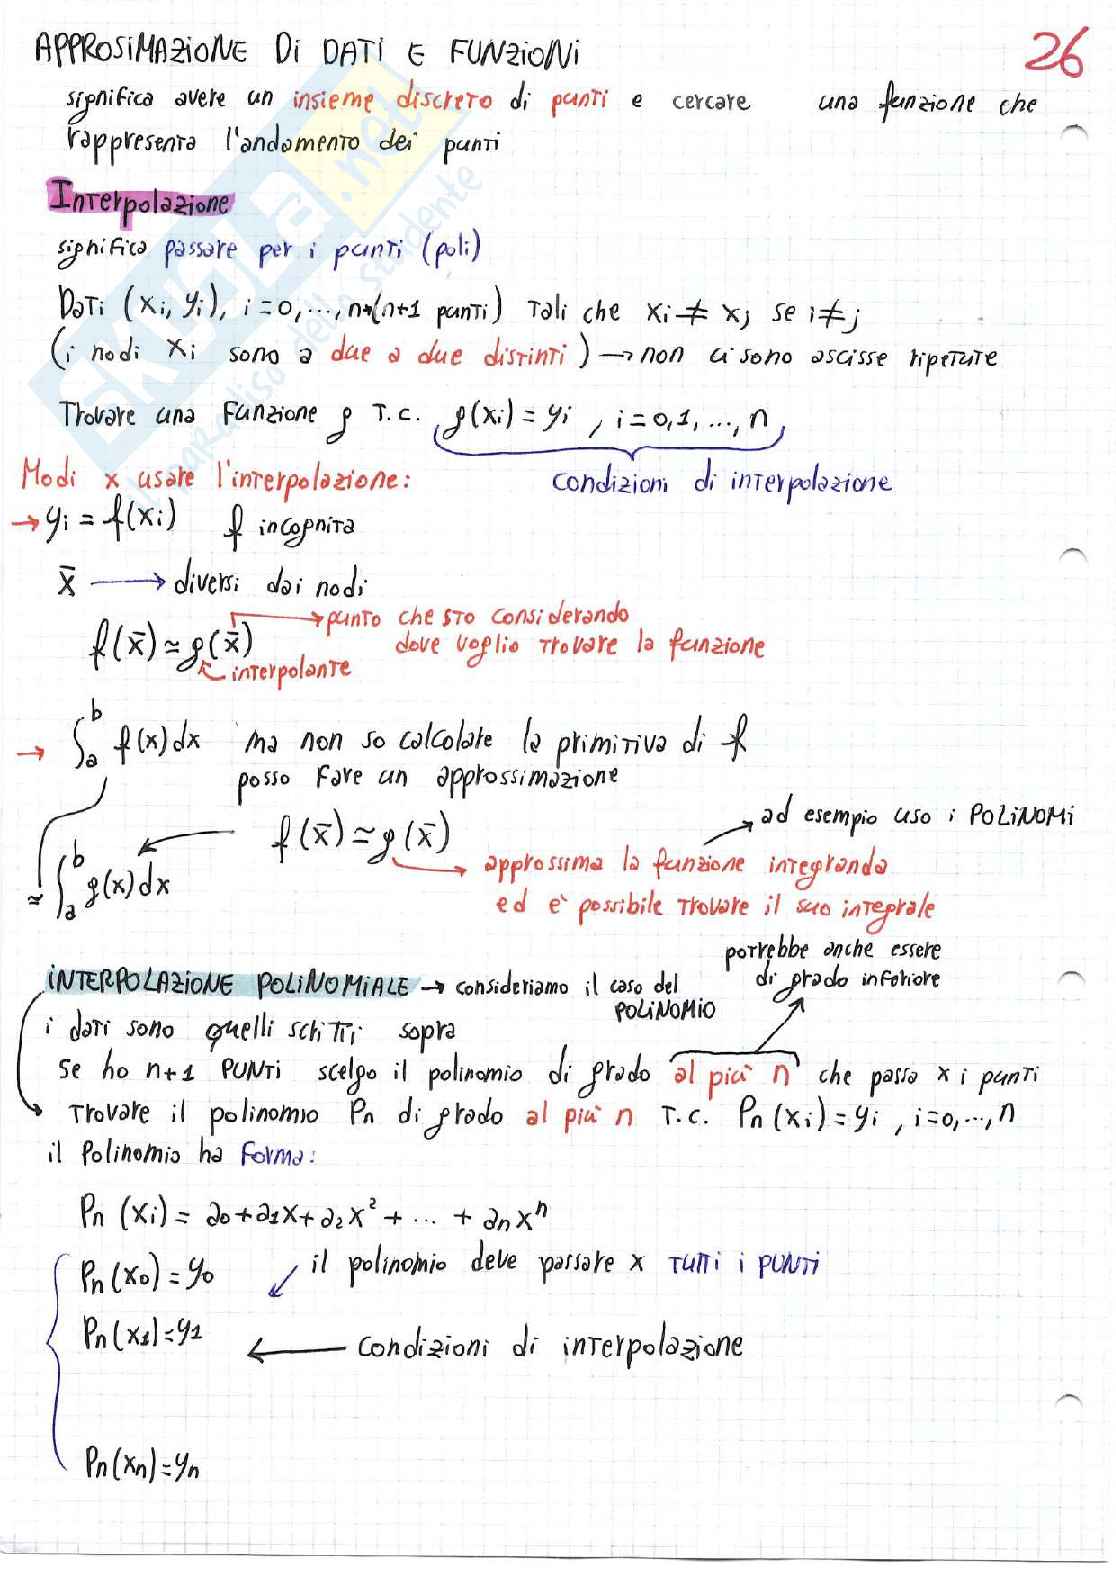 APPROSIMAZIONE DI DATI E FUNZIONI
26
significa avere un insieme discreto di punti e cercare una funzione che
rappresenta l'andamento dei punti
Interpolazione
significa passare per i punti (poli)
Dati (xi, yi), i=0,...,n→(n+1 punti) Tali che xi ≠ xj se i≠j
(i nodi xi sono a due a due distinti) → non ci sono ascisse ripetute
Trovare una funzione g T.C. g(xi) = yi , i=0,1,...,n
condizioni di interpolazione
Modi x usare l'interpolazione:
→ yi = f(xi) f incognita
x̄ → diversi dai nodi
f(x̄) ≃ g(x̄) → punto che sto considerando
dove voglio trovare la funzione
interpolante
→ ∫ₐᵇ f(x)dx ma non so calcolare la primitiva di f
posso fare un approssimazione
f(x̄) ≃ g(x̄)
ad esempio uso i POLINOMI
approssima la funzione integranda
≃ ∫ₐᵇ g(x)dx
ed è possibile trovare il suo integrale
INTERPOLAZIONE POLINOMIALE → consideriamo il caso del
POLINOMIO
potrebbe anche essere
di grado inferiore
i dati sono quelli scritti sopra
Se ho n+1 PUNTI scelgo il polinomio di grado al più n che passa x i punti
Trovare il polinomio Pn di grado al più n T.C. Pn(xi)=yi , i=0,...,n
il Polinomio ha forma:
Pn(xi) = a0+a1x+a2x² + ... + anxⁿ
Pn(x0)=y0
il polinomio deve passare x TUTTI i PUNTI
Pn(x1)=y1
← condizioni di interpolazione
Pn(xn)=yn
SKUOLA.net
il paradiso dello studente